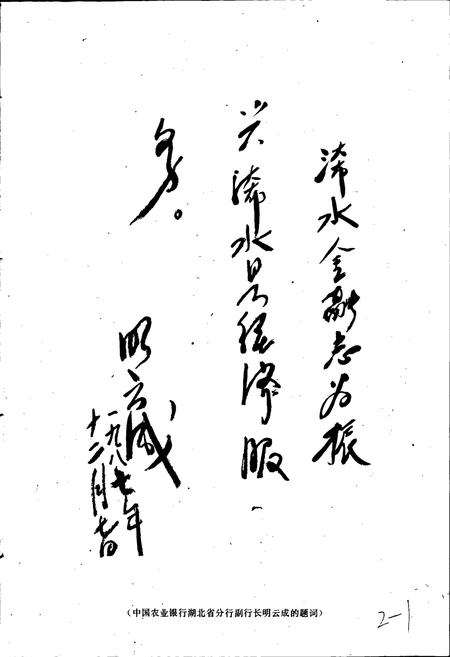 浠水金融志为振
兴浠水县经济服
务。
明云成
一九八七年
十二月七日
（中国农业银行湖北省分行副行长明云成的题词）
2-1